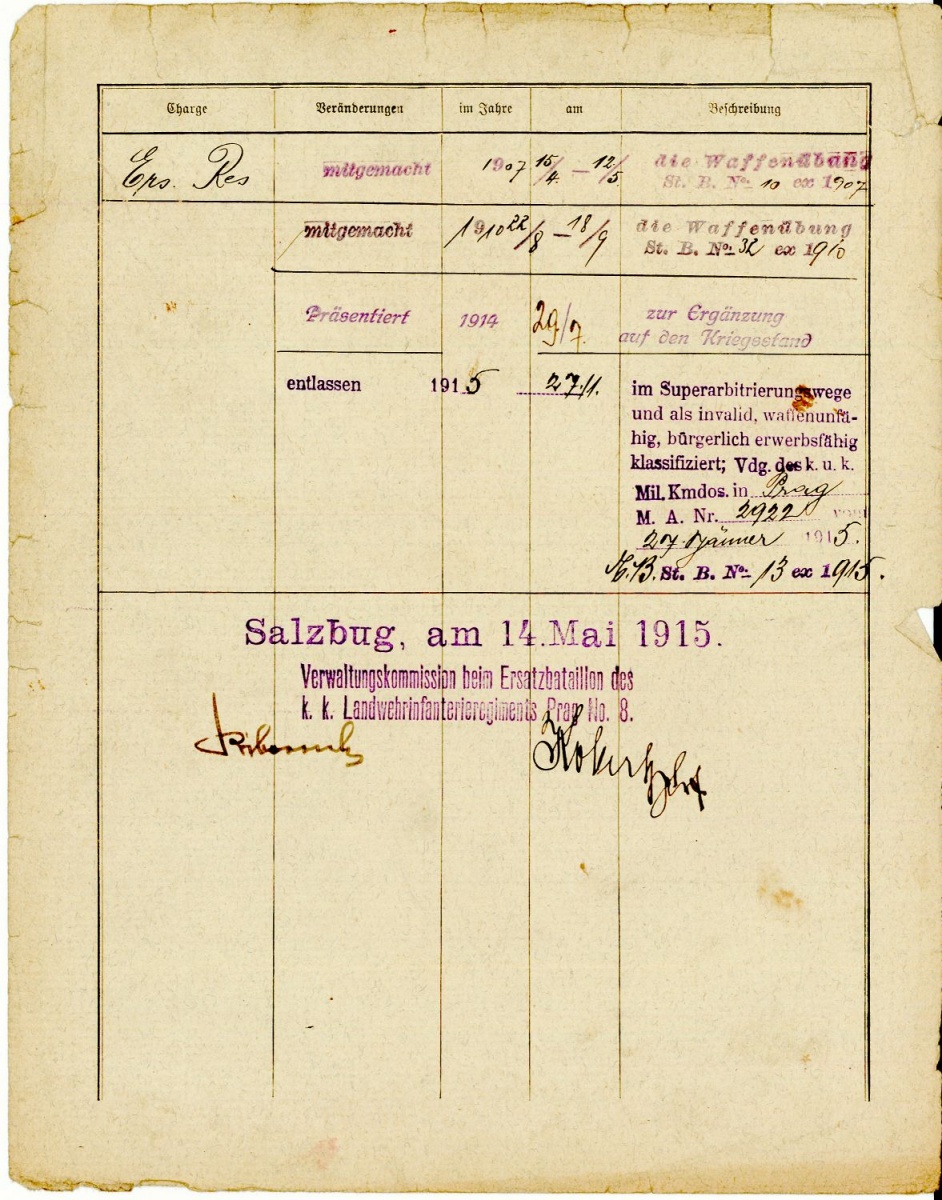 Charge Veränderungen im Jahre am Beschreibung
Ers. Res mitgemacht 1907 15/4. – 12/5 die Waffenübung
St. B. No. 10 ex 1907
mitgemacht 1910 22/8 – 18/9 die Waffenübung
St. B. No. 32 ex 1910
Präsentiert 1914 29/7. zur Ergänzung
auf den Kriegsstand
entlassen 1915 27./1. im Superarbitrierungswege
und als invalid, waffenunfä-
hig, bürgerlich erwerbsfähig
klassifiziert; Vdg. des k. u. k.
Mil. Kmdos. in Prag
M. A. Nr. 2922 vom
27. Jänner 1915.
St. B. No. 13 ex 1915.
Salzbug, am 14. Mai 1915.
Verwaltungskommission beim Ersatzbataillon des
k. k. Landwehrinfanterieregiments Prag No. 8.